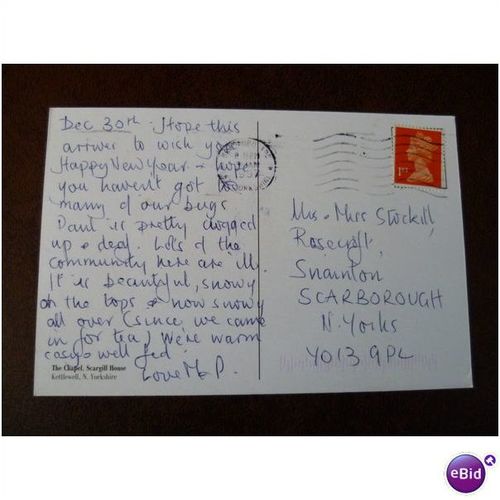 Dec 30th. Hope this
arrives to wish you
Happy New Year & hope
you haven't got too
many of our bugs.
Paul is pretty clogged
up & deaf. Lots of the
community here are ill.
It is beautiful, snowy
on the tops & now snowy
all over (since we came
in for tea) We're warm
cosy & well fed.
Love M & P.
The Chapel, Scargill House
Kettlewell, N. Yorkshire
1ST
Mr & Mrs Stockill,
Rosecroft,
Snainton
SCARBOROUGH
N. Yorks
YO13 9PL
eBid